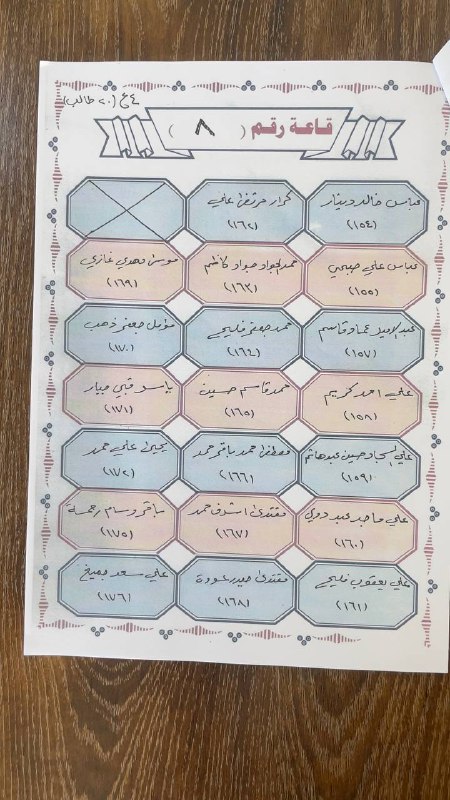 ٤ع (٢٠ طالب)
قاعة رقم ( ٨ )
عباس خالد دينار
(١٥٤)
كرار مرتضى علي
(١٦٢)
عباس علي صبحي
(١٥٥)
محمد الجواد جواد كاظم
(١٦٣)
موسى مهدي غازي
(١٦٩)
عبد الامير عماد قاسم
(١٥٧)
محمد جعفر فليح
(١٦٤)
مؤمل جعفر ذهب
(١٧٠)
علي احمد كريم
(١٥٨)
محمد قاسم حسين
(١٦٥)
ياسر قبي جبار
(١٧١)
علي السجاد حسين عبد هاتم
(١٥٩)
مصطفى محمد باقر محمد
(١٦٦)
يحيى علي محمد
(١٧٢)
علي ماجد عبد دوي
(١٦٠)
مقتدى اشرف محمد
(١٦٧)
باقر وسام رحمة
(١٧٥)
علي يعقوب فليح
(١٦١)
مقتدى حيدر عودة
(١٦٨)
علي سعد
(١٧٦)